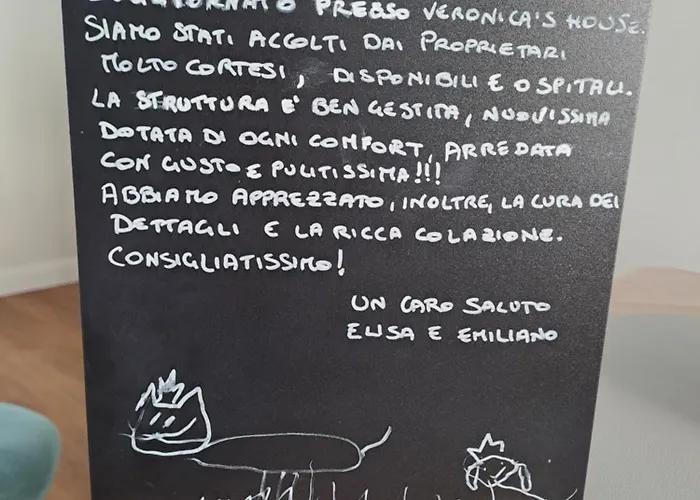 PRESSO VERONICA'S HOUSE.
SIAMO STATI ACCOLTI DAI PROPRIETARI
MOLTO CORTESI, DISPONIBILI E OSPITALI.
LA STRUTTURA E' BEN GESTITA, NUOVISSIMA
DOTATA DI OGNI COMFORT, ARREDATA
CON GUSTO E PULITISSIMA!!!
ABBIAMO APPREZZATO, INOLTRE, LA CURA DEI
DETTAGLI E LA RICCA COLAZIONE.
CONSIGLIATISSIMO!
UN CARO SALUTO
ELISA E EMILIANO